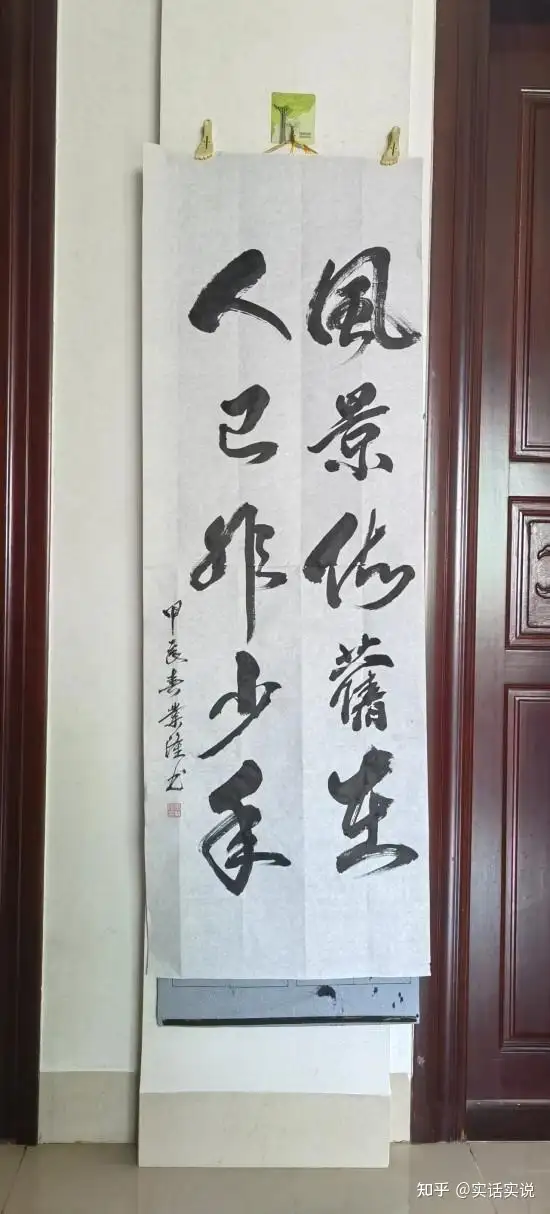 風景依舊在
人已非少年
甲辰春業书
知乎 @实话实说